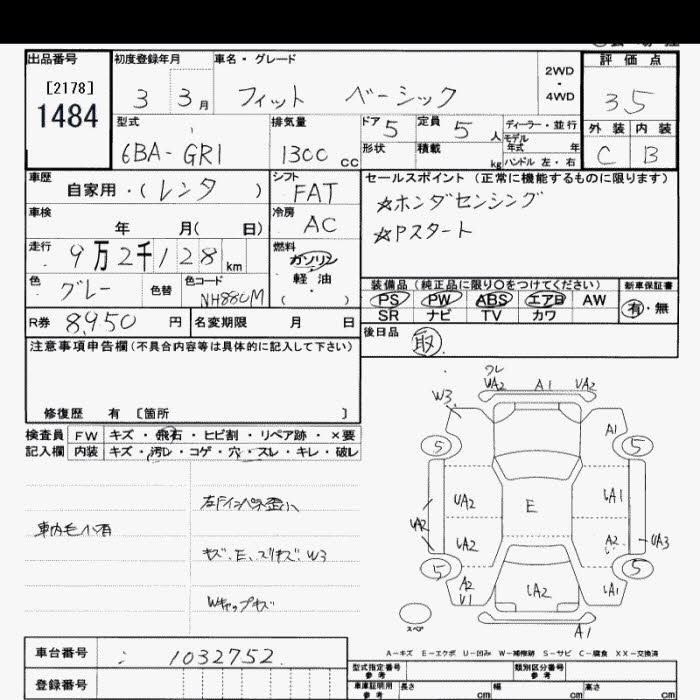 出品番号 初度登録年月 車名・グレード 評価点
[2178]
1484
3 3月 フィット ベーシック 2WD・4WD 3.5
型式 排気量 ドア 5 定員 5人 ディーラー・並行 外装 内装
6BA-GR1 1300cc 形状 積載 kg モデル年式 年 ハンドル 左・右 C B
車歴 自家用・(レンタ) シフト FAT セールスポイント (正常に機能するものに限ります)
車検 年 月( 日) 冷房 AC ☆ホンダセンシング
☆Pスタート
走行 9万2千128km 燃料 ガソリン・軽油・( )
色 グレー 色替 色コード NH880M 装備品(純正品に限り○をつけてください) 新車保証書
PS PW ABS エアB AW 有・無
SR ナビ TV カワ
R券 8,950円 名変期限 月 日 後日品 取
注意事項申告欄(不具合内容等は具体的に記入して下さい)
修復歴 有 〔箇所 〕
検査員記入欄 FW キズ・飛石・ヒビ割・リペア跡・×要
内装 キズ・汚レ・コゲ・穴・スレ・キレ・破レ
車内毛小有
キズ、E、スリキズ、W3
Wキャップキズ
ワレ
UA2 A1 UA2
W3 A1
5 5
UA2 E UA1
UA2 UA2 A2 UA3
5 5
A2 U1 UA2 UA1
スペア A1
A-キズ E-エクボ U-凹み W-補修跡 S-サビ C-腐食 XX-交換済
車台番号 1032752
登録番号
型式指定番号 参考 類別区分番号 参考
車庫証明用 参考 長さ cm 幅 cm 高さ cm